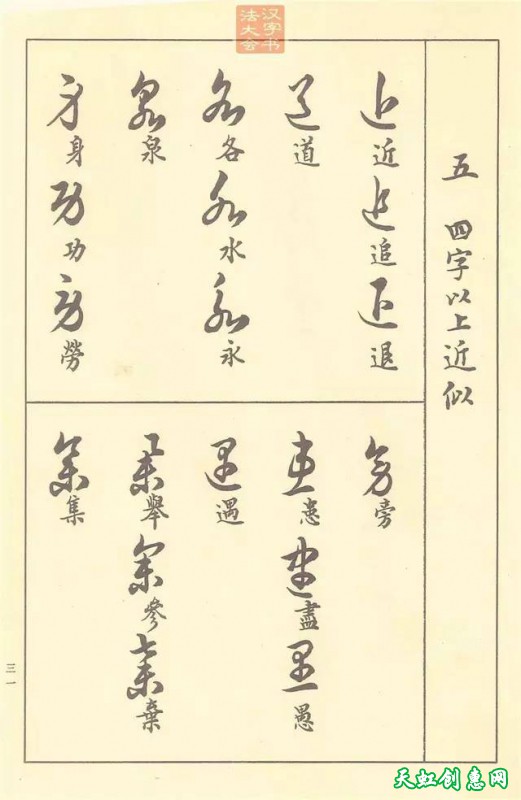 汉字书法大会
五 四字以上近似
近 追 退
道
各 水 永
泉
身 功 勞
旁
患 盡 愚
遇
舉 參 棄
集
三一
天虹创惠网